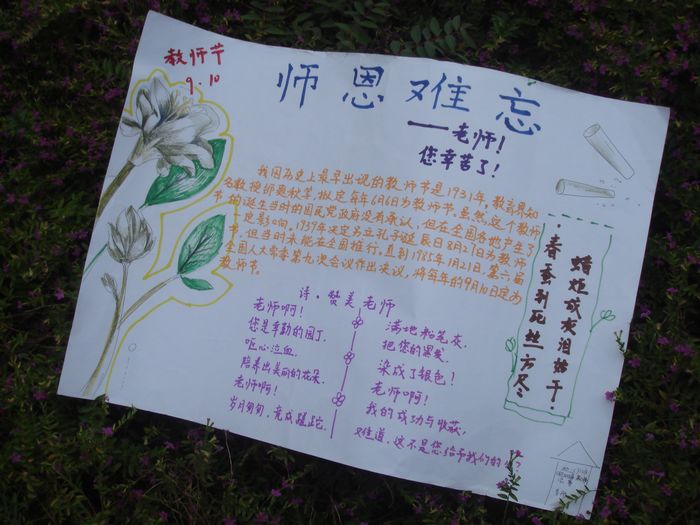 教师节
9.10
师恩难忘
——老师！
您辛苦了！
我国历史上最早出现的教师节是1931年，教育界知
名教授邰爽秋等，拟定每年6月6日为教师节。虽然，这个教师
节的诞生当时的国民党政府没有承认，但在全国各地产生了
一定影响。1937年决定为立孔子诞辰日8月27日为教师
节，但当时未能在全国推行。直到1985年1月21日，第六届
全国人大常委第九次会议作出决议，将每年的9月10日定为
教师节。
诗·赞美老师
老师啊！
您是辛勤的园丁，
呕心沥血，
培养出美丽的花朵，
老师啊！
岁月匆匆，竟成蹉跎。
满地粉笔灰，
把您的黑发，
染成了银色！
老师啊！
我的成功与收获，
难道，这不是您给予我们的
·春蚕到死丝方尽
蜡炬成灰泪始干·